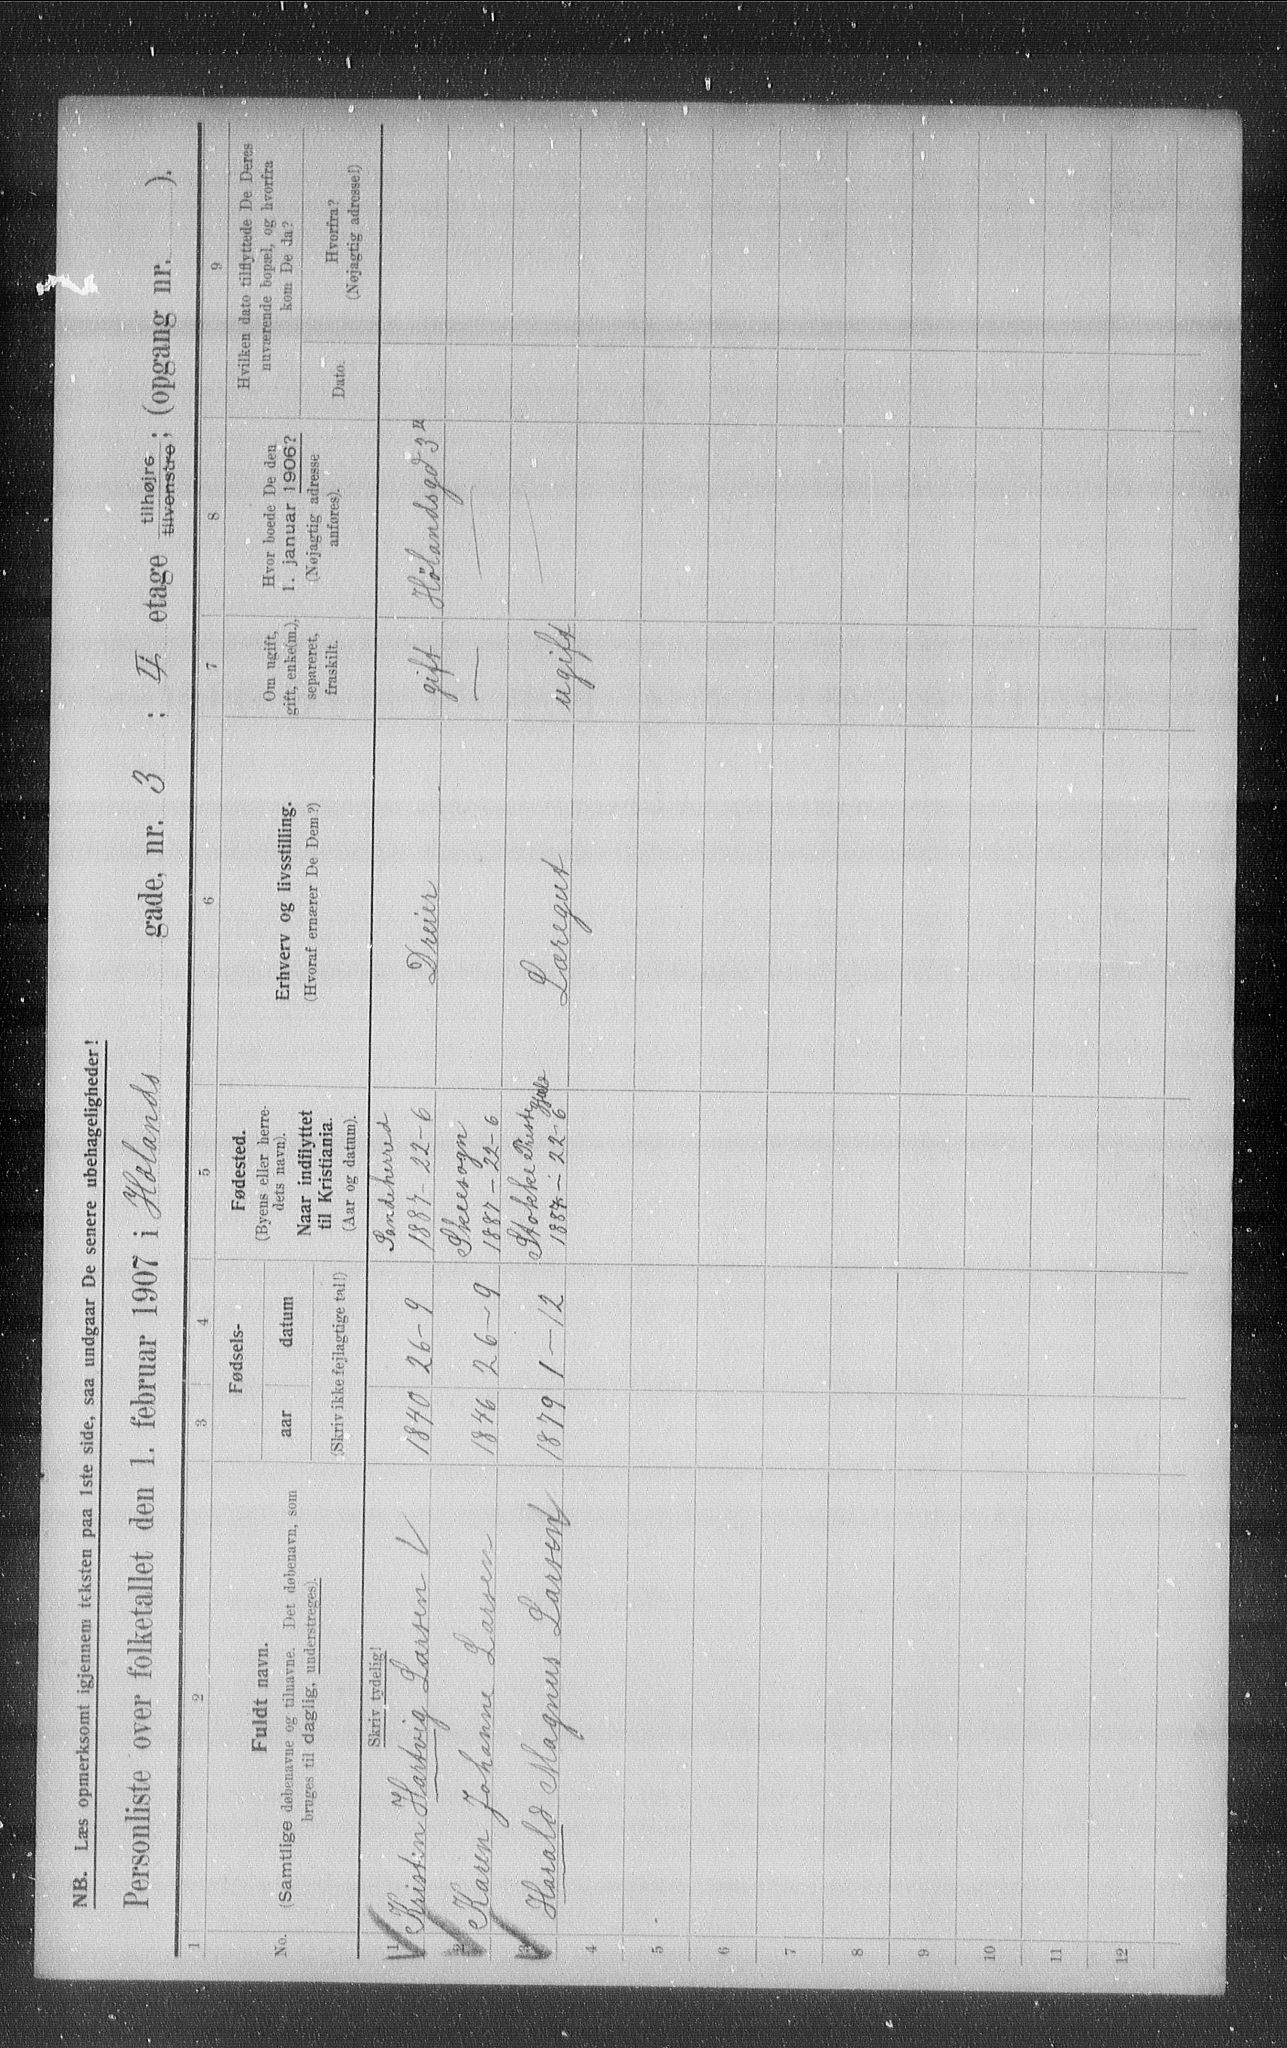 NB. Læs opmerksomt igjennem teksten paa 1ste side, saa undgaar De senere ubehageligheder!
Personliste over folketallet den 1. februar 1907 i Hølands gade, nr. 3 ; II etage tilhøjre; tilvenstre; (opgang nr. ).
1 2 3 4 5 6 7 8 9
No.
Fuldt navn.
(Samtlige døbenavne og tilnavne. Det døbenavn, som
bruges til daglig, understreges).
Fødsels-
aar datum
(Skriv ikke fejlagtige tal!)
Fødested.
(Byens eller herre-
dets navn).
Naar indflyttet
til Kristiania.
(Aar og datum).
Erhverv og livsstilling.
(Hvoraf ernærer De Dem?)
Om ugift,
gift, enke(m.),
separeret,
fraskilt.
Hvor boede De den
1. januar 1906?
(Nøjagtig adresse
anføres).
Hvilken dato tilflyttede De Deres
nuværende bopæl, og hvorfra
kom De da?
Dato.
Hvorfra?
(Nøjagtig adresse!)
Skriv tydelig!
Sandeherred
1 Kristin Hartvig Larsen 1840 26-9 1887-22-6 Dreier gift Hølandsgd 3 II
Skeesogn
2 Karen Johanne Larsen 1846 26-9 1887-22-6 — —
Stokke Prestegjeld
3 Harald Magnus Larsen 1879 1-12 1887-22-6 Læregut ugift —
4
5
6
7
8
9
10
11
12